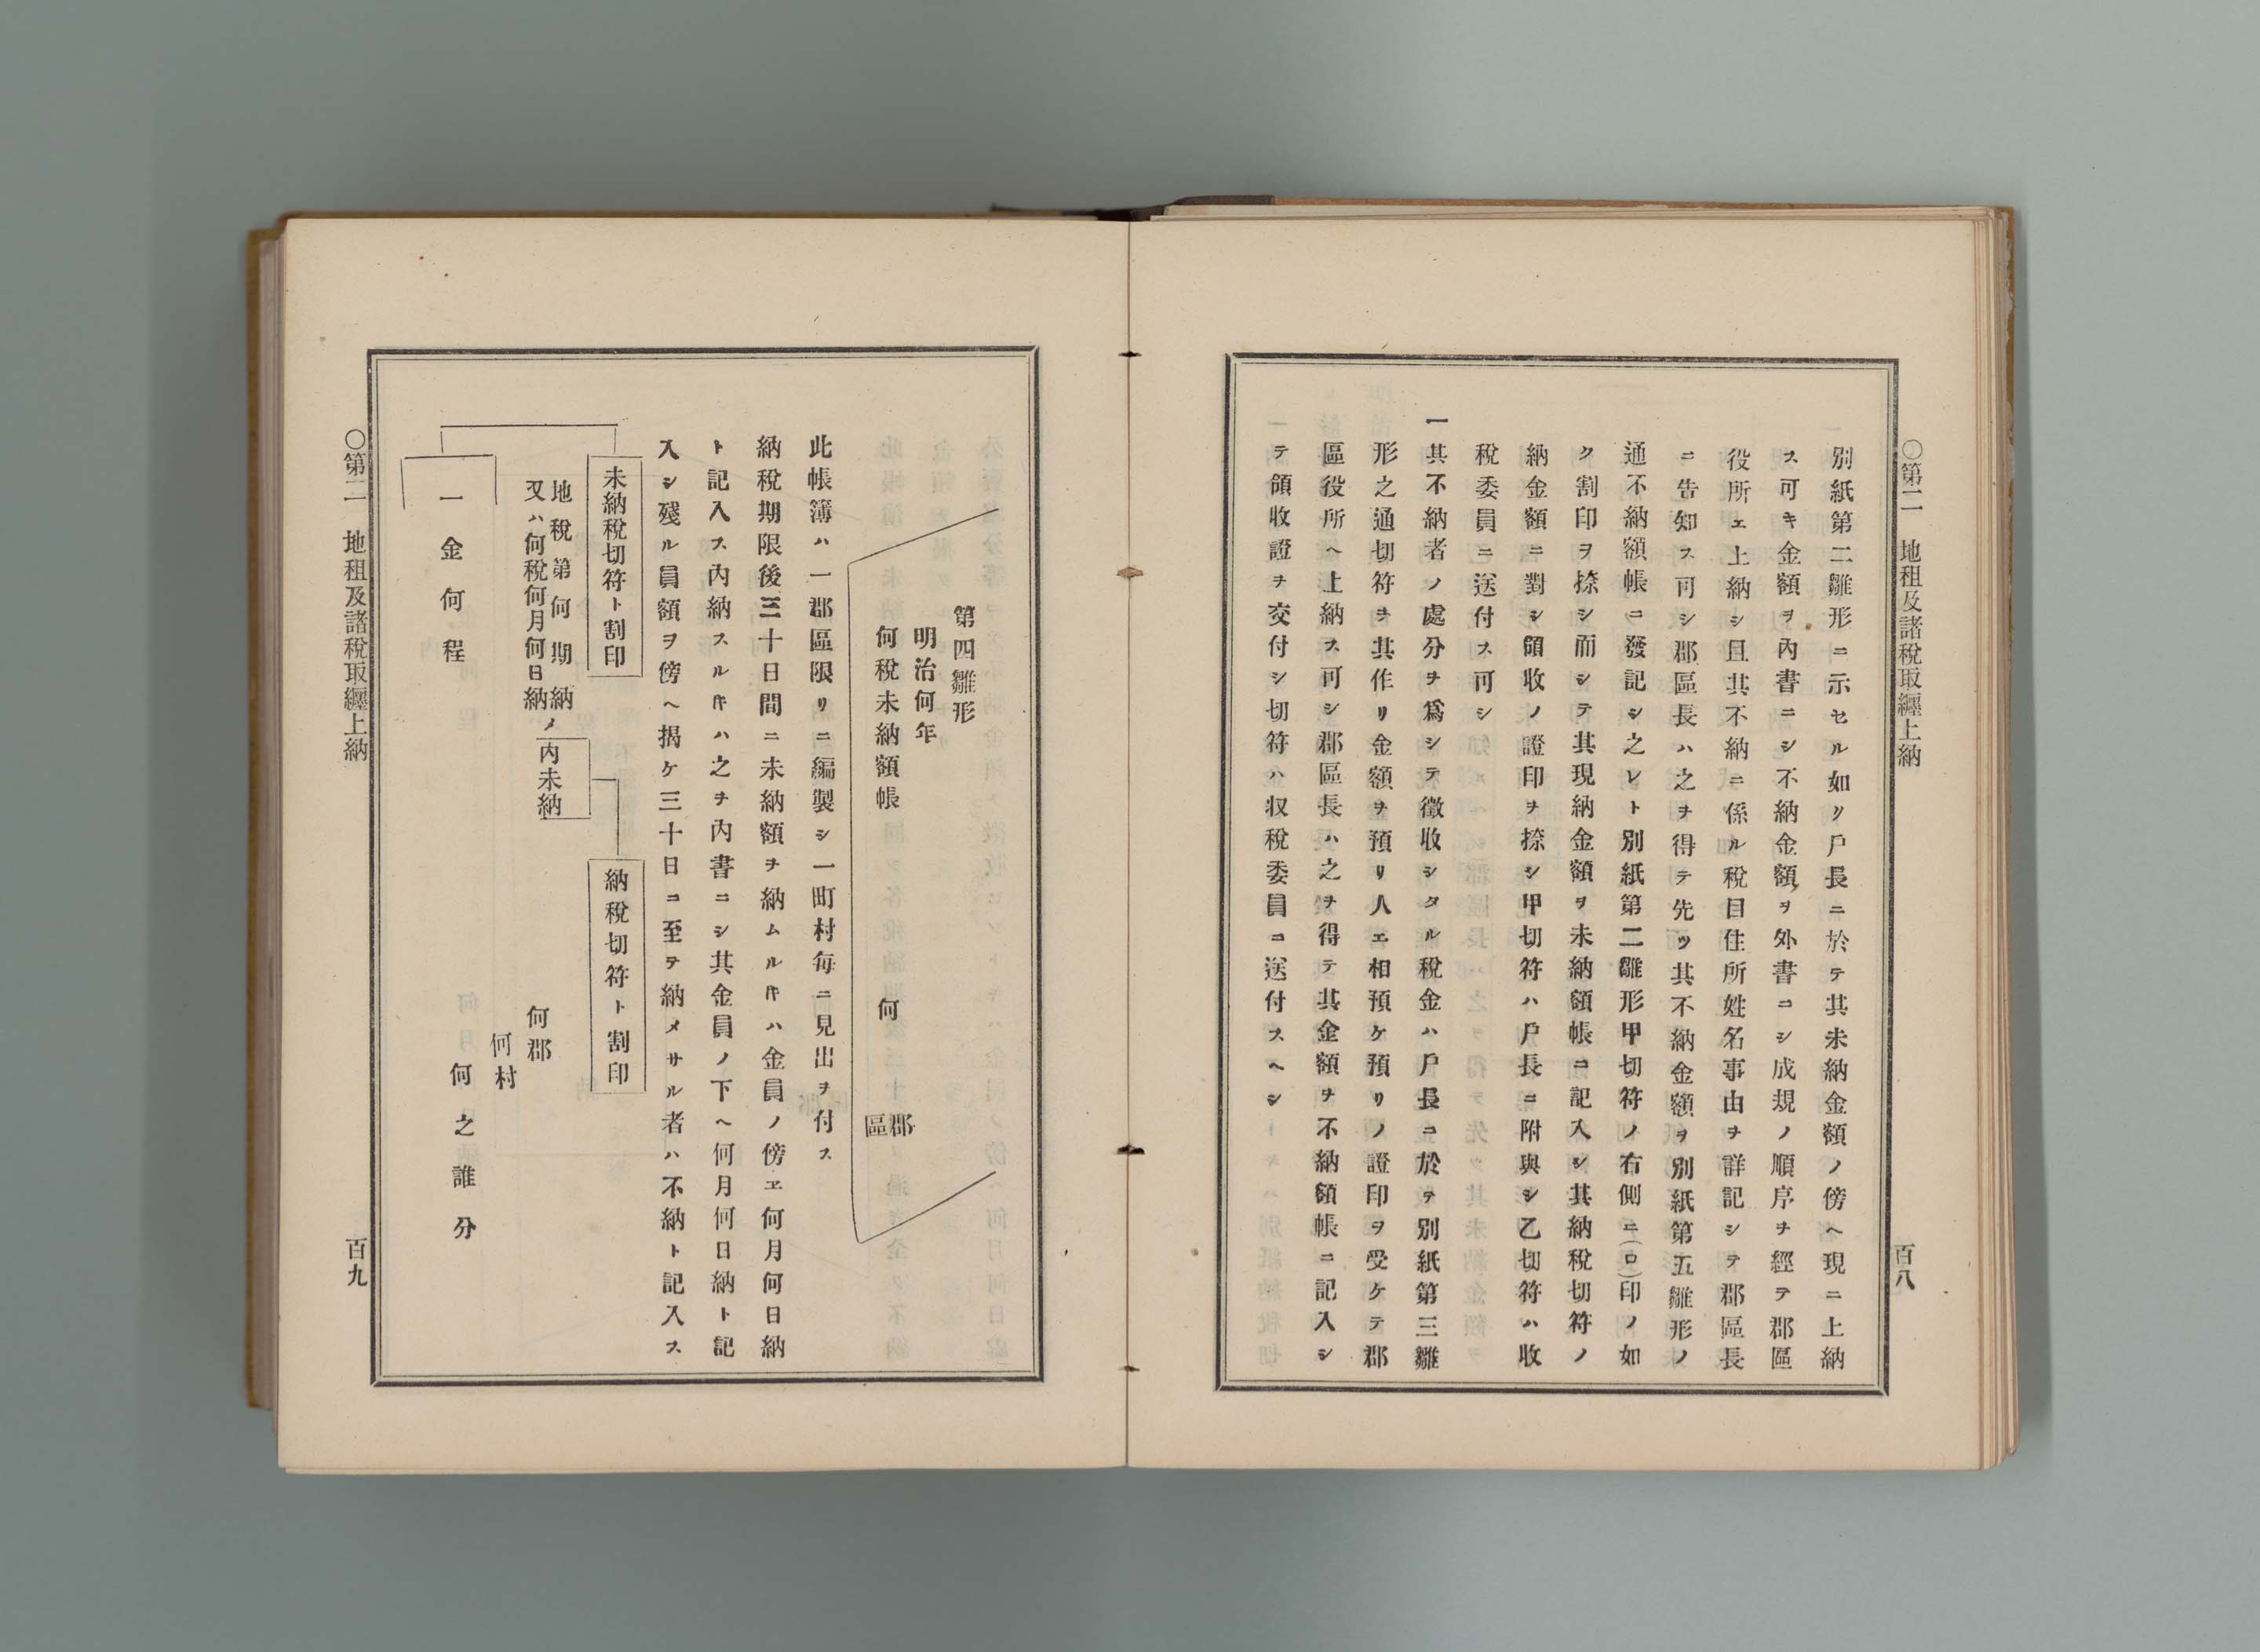 〇第二　地租及諸稅取纒上納
百八
別紙第二雛形ニ示セル如ク戶長ニ於テ其未納金額ノ傍ヘ現ニ上納
ス可キ金額ヲ內書ニシ不納金額ヲ外書ニシ成規ノ順序ヲ經テ郡區
役所ェ上納シ且其不納ニ係ル稅目住所姓名事由ヲ詳記シテ郡區長
ニ告知ス可シ郡區長ハ之ヲ得テ先ツ其不納金額ヲ別紙第五雛形ノ
通不納額帳ニ發記シ之レト別紙第二雛形甲切符ノ右側ニ(ロ)印ノ如
ク割印ヲ捺シ而シテ其現納金額ヲ未納額帳ニ記入シ其納稅切符ノ
納金額ニ對シ領收ノ證印ヲ捺シ甲切符ハ戶長ニ附與シ乙切符ハ收
稅委員ニ送付ス可シ
一其不納者ノ處分ヲ爲シテ徵收シタル稅金ハ戶長ニ於テ別紙第三雛
形之通切符ヲ其作リ金額ヲ預リ人エ相預ケ預リノ證印ヲ受ケテ郡
區役所ヘ上納ス可シ郡區長ハ之ヲ得テ其金額ヲ不納額帳ニ記入シ
テ領收證ヲ交付シ切符ハ収稅委員ニ送付スヘシ
第四雛形
明治何年
何稅未納額帳
何
郡
區
此帳簿ハ一郡區限リニ編製シ一町村每ニ見出ヲ付ス
納稅期限後三十日間ニ未納額ヲ納ムルキハ金員ノ傍ヱ何月何日納
ト記入ス內納スルキハ之ヲ內書ニシ其金員ノ下ヘ何月何日納ト記
入シ殘ル員額ヲ傍ヘ揭ケ三十日ニ至テ納メサル者ハ不納ト記入ス
未納稅切符ト割印
納稅切符ト割印
地稅第何期納ノ
又ハ何稅何月何日納
內未納
何郡
何村
一金何程
何之誰分
〇第二　地租及諸稅取纒上納
百九